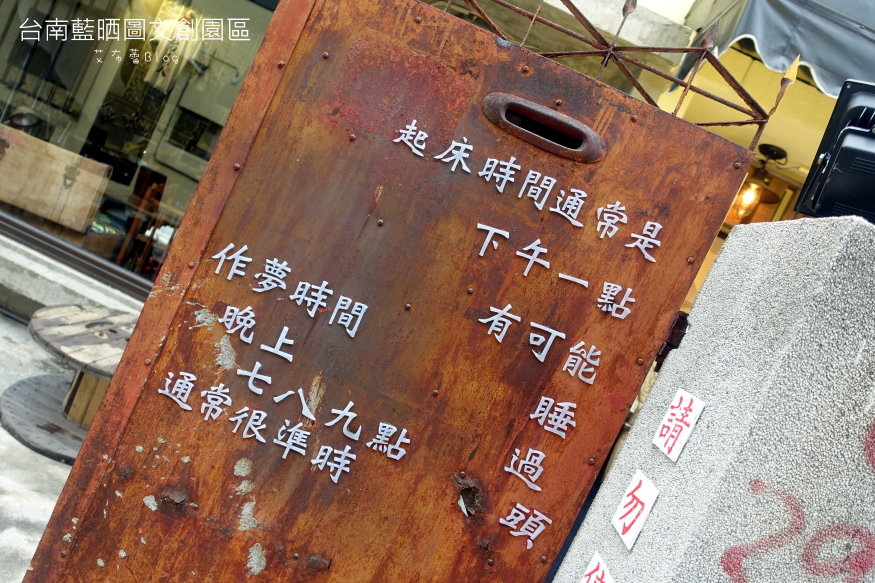 台南藍晒圖文創園區
艾布蕾Blog
起床時間通常是
下午一點
有可能
睡
過
頭
作夢時間
晚上
七八九點
通常很準時
請
勿